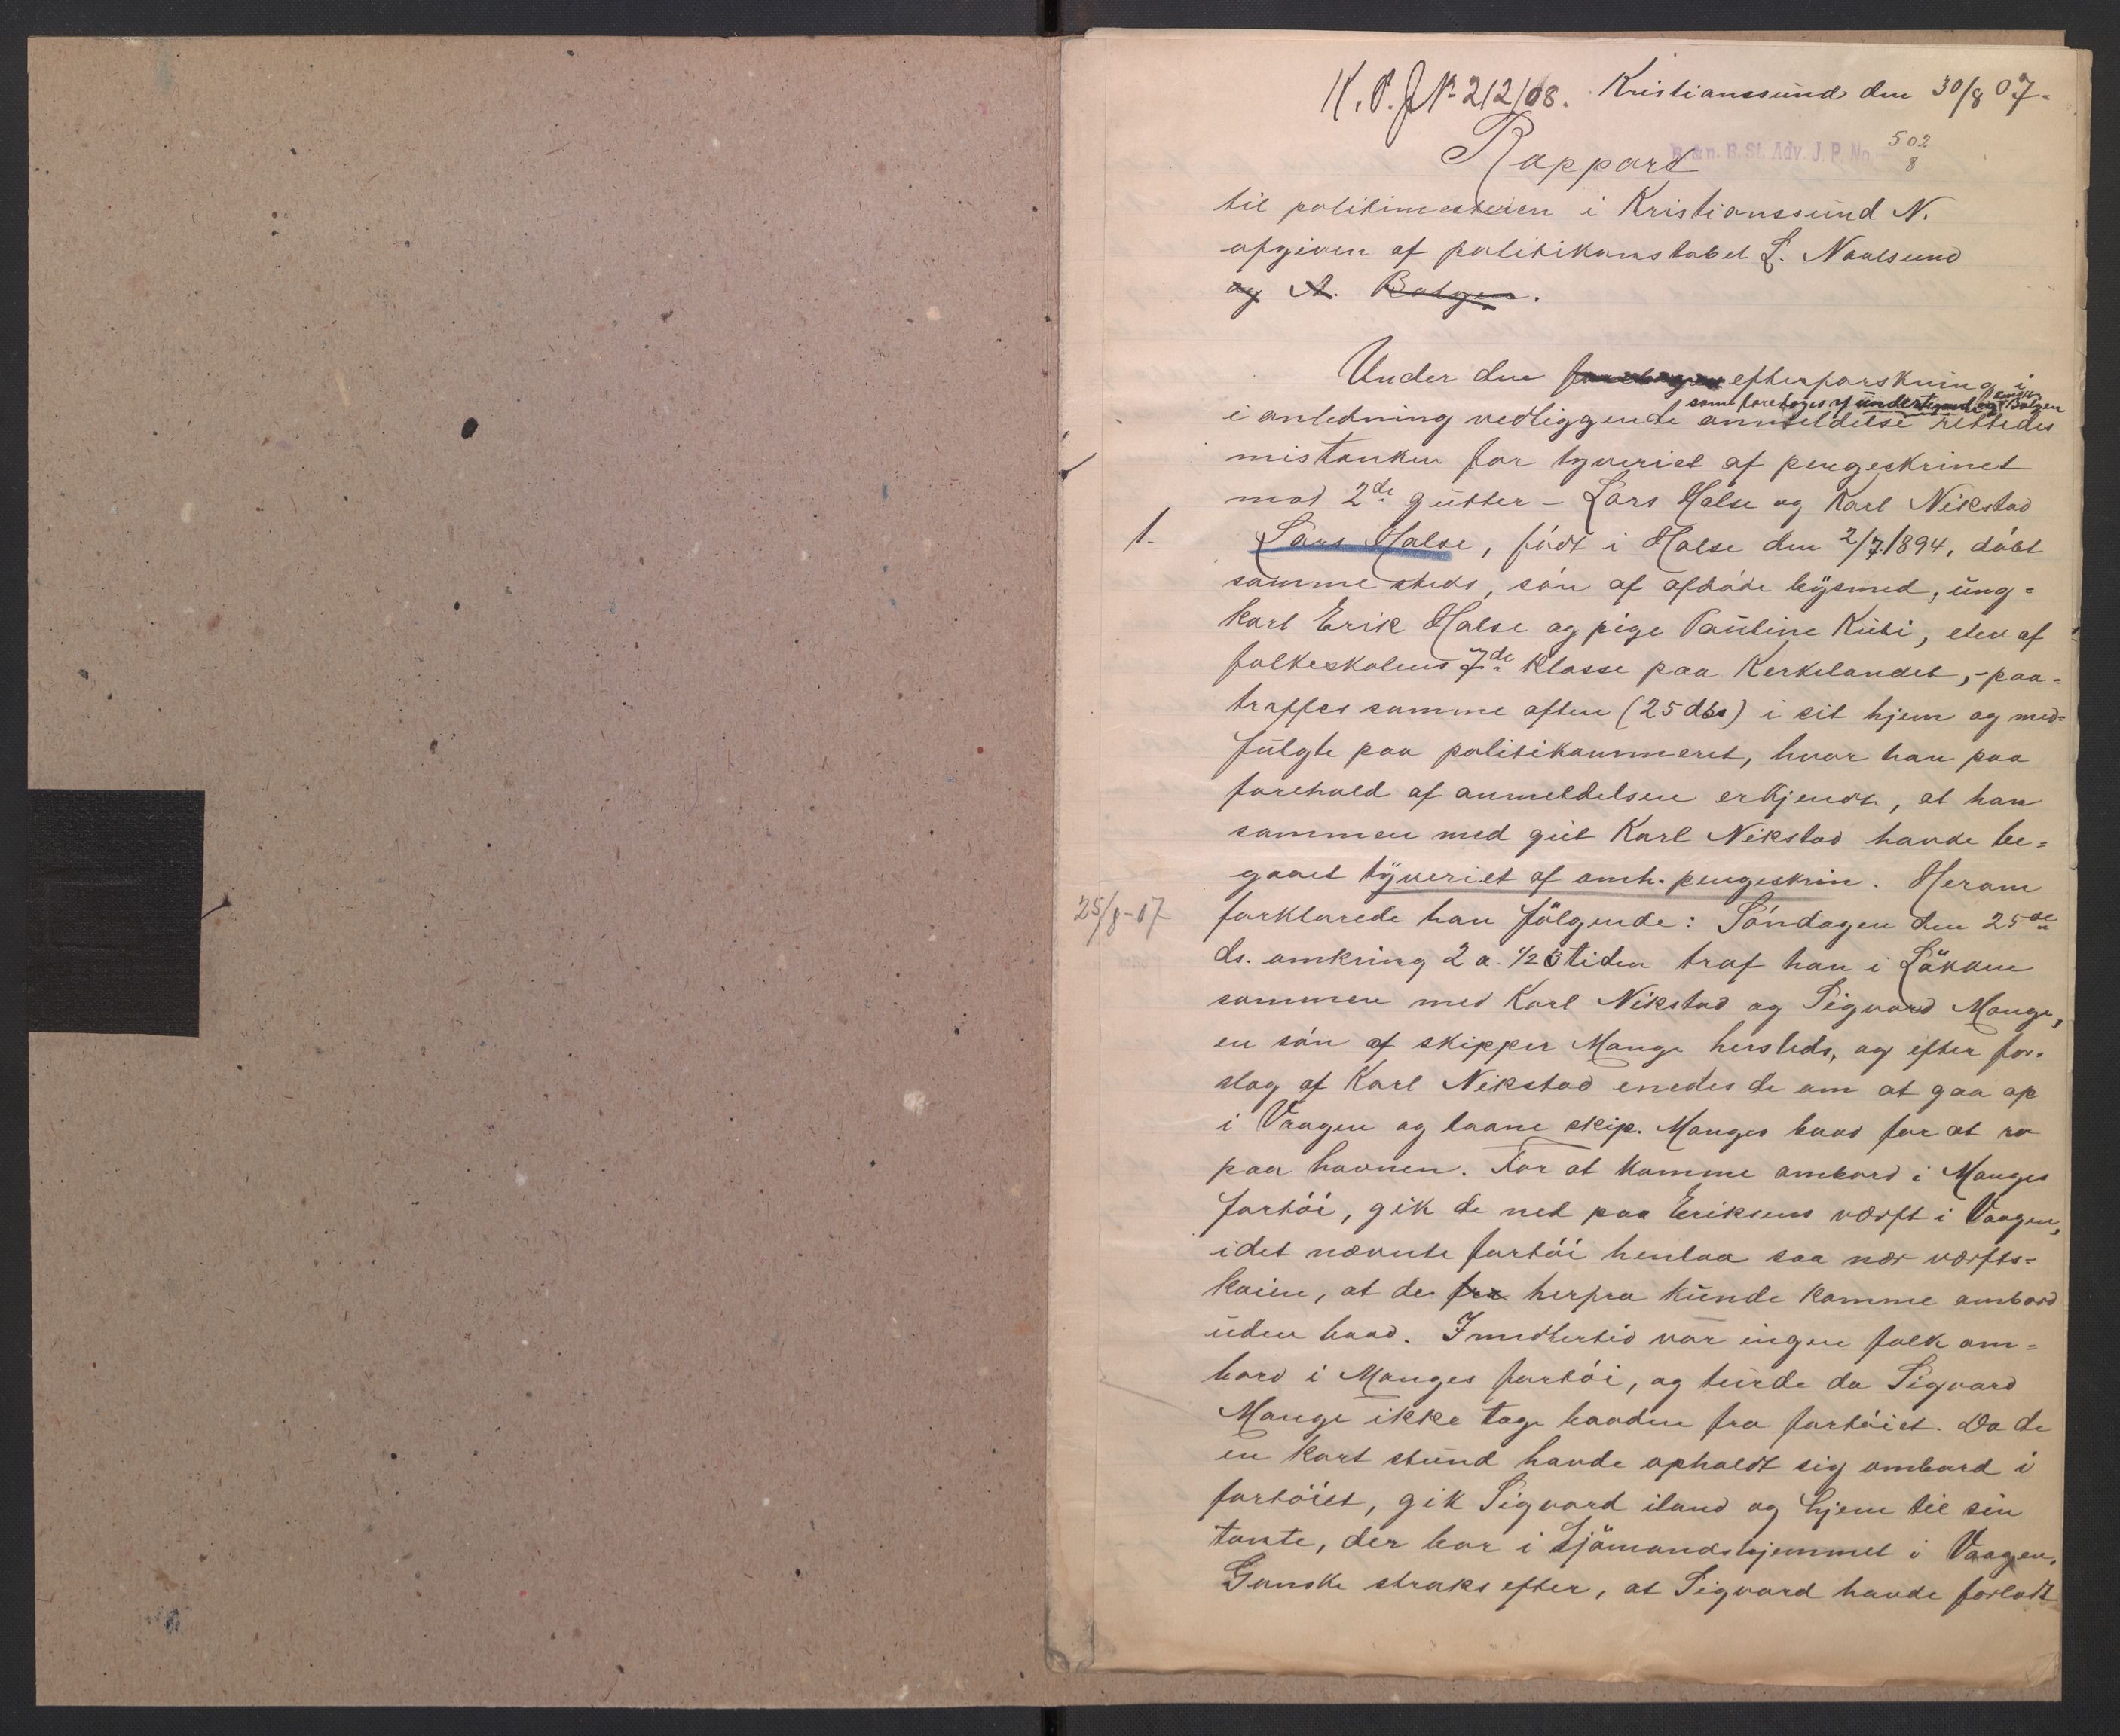 K. P. J. No 212/08. Kristianssund den 30/8 07.
R. & n. B. St. Adv. J. P. No 502/8
Rapport
til politimesteren i Kristianssund N.
afgiven af politikonstabel L. Naalsund
og A. Bolgen.
Under den foretagne efterforskning i
som foretoges af undertegnede og Bolgen
i anledning vedliggende anmeldelse rettedes
mistanken for tyveriet af pengeskrinet
mod 2de gutter – Lars Halse og Karl Nikstad
1. Lars Halse, födt i Halse den 2/7 1894, döbt
sammesteds, sön af afdöde bysmed, ung=
karl Erik Halse og pige Pauline Kubi, elev af
folkeskolens 7de klasse paa Kerkelandet, – paa=
traffes samme aften (25 ds) i sit hjem og med=
fulgte paa politikammeret, hvor han paa
forehold af anmeldelsen erkjendte, at han
sammen med gut Karl Nikstad havde be=
gaaet tyveriet af omh. pengeskrin. Herom
25/8-07 forklarede han fölgende: Söndagen den 25de
ds. omkring 2 a. 1/2 3 tiden traf han i Lökken
sammen med Karl Nikstad og Sigvard Mauge,
en sön af skipper Mauge hersteds, og efter for=
slag af Karl Nikstad enedes de om at gaa op
i Vaagen og laane skip. Mauges baad for at ro
paa havnen. For at komme ombord i Mauges
fartöi, gik de ned paa Eriksens værft i Vaagen,
idet nævnte fartöi henlaa saa nær værfts=
kaien, at de fra herfra kunde komme ombord
uden baad. Imidlertid var ingen folk om=
bord i Mauges fartöi, og turde da Sigvard
Mauge ikke tage baaden fra fartöiet. Da de
en kort stund havde opholdt sig ombord i
fartöiet, gik Sigvard iland og hjem til sin
tante, der bor i Sjömandshjemmet i Vaagen.
Ganske straks efter, at Sigvard havde forladt